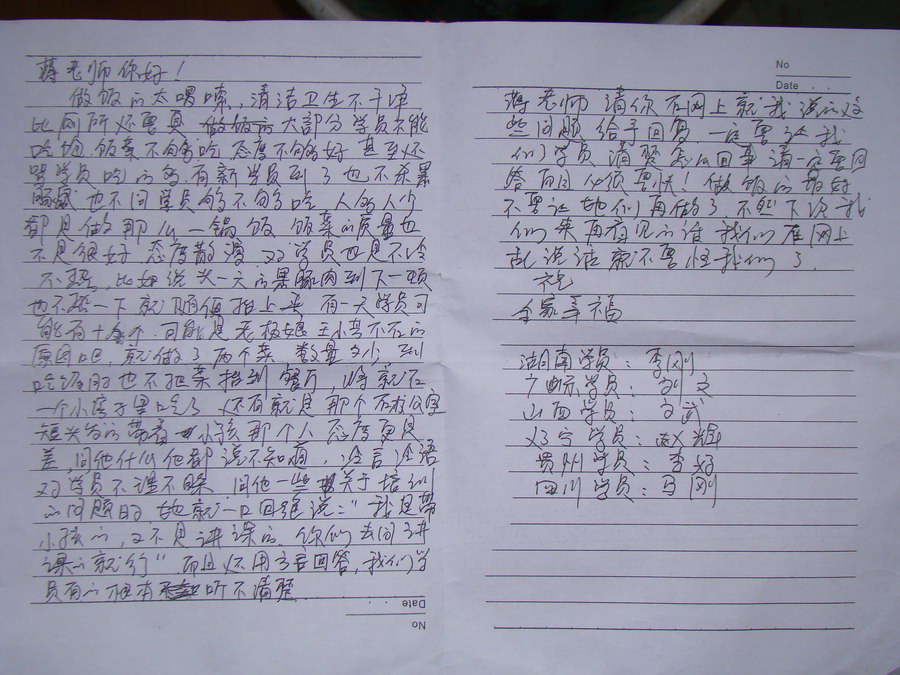 蒋老师你好！
做饭的太啰嗦，清洁卫生不干净
比厕所还要臭 做饭的大部分学员不能
吃饱 饭菜不够吃 态度不够好 甚至还
骂学员吃的多，有新学员到了也不来
也不问学员够了不够了吃，人多人少
都是做那么一锅饭 饭菜的质量也
不是很好 态度散漫 对学员也是不冷
不热，比如说头一天的黑豚肉到下一顿
也不 一下就随便抬上来 有一天学员可
能有十多个，可能是老板娘王小 不在的
原因吧，就做了两个菜，数量又少，到
吃饭时也不把菜抬到餐厅，将就在
一个小房子里吃了 还有就是那个在办公室
短头发的带着一小孩那个人 态度更是
差，问他什么他都说不知道，冷言冷语
对学员不理不睬，问他一些关于培训
的问题时 她就一口回绝说：“我是带
小孩的，又不是讲课的，你们去问讲
课的就行” 而且还用方言回答，我们学
员有的根本听不清楚
Date
No
No
Date
蒋老师 请你在网上就我说的这
些问题 给予回复，一定要让我
们学员清楚怎么回事 请一定要回
答 而且必须要快！做饭的最好
不要让她们再做了 不然下次我
们来再看见的话 我们在网上
乱说话就不要怪我们了．
祝
全家幸福
湖南学员：李刚
广东学员：刘文
山西学员：王武
辽宁学员：赵辉
贵州学员：李好
四川学员：马刚